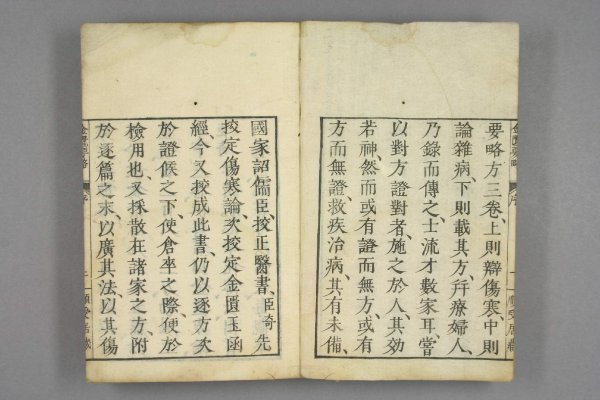 要略方三卷、上則辯傷寒、中則
論雜病、下則載其方、幷療婦人、
乃錄而傳之、士流才數家耳、嘗
以對方證對者、施之於人、其效
若神、然而或有證而無方、或有
方而無證、救疾治病、其有未備、
國家詔儒臣、挍正醫書、臣奇先
挍定傷寒論、次挍定金匱玉函
經、今又挍成此書、仍以逐方次
於證候之下、使倉卒之際、便於
檢用也、又採散在諸家之方、附
於逐篇之末、以廣其法、以其傷